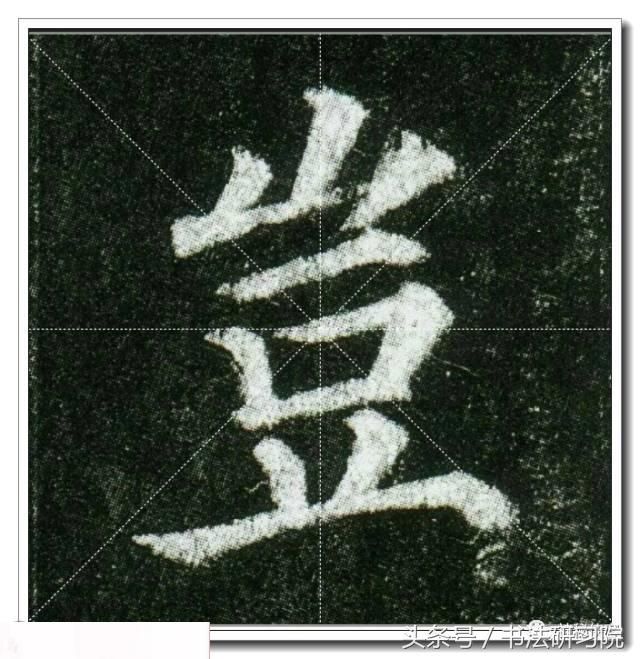 豈
头条号 / 书法研习院